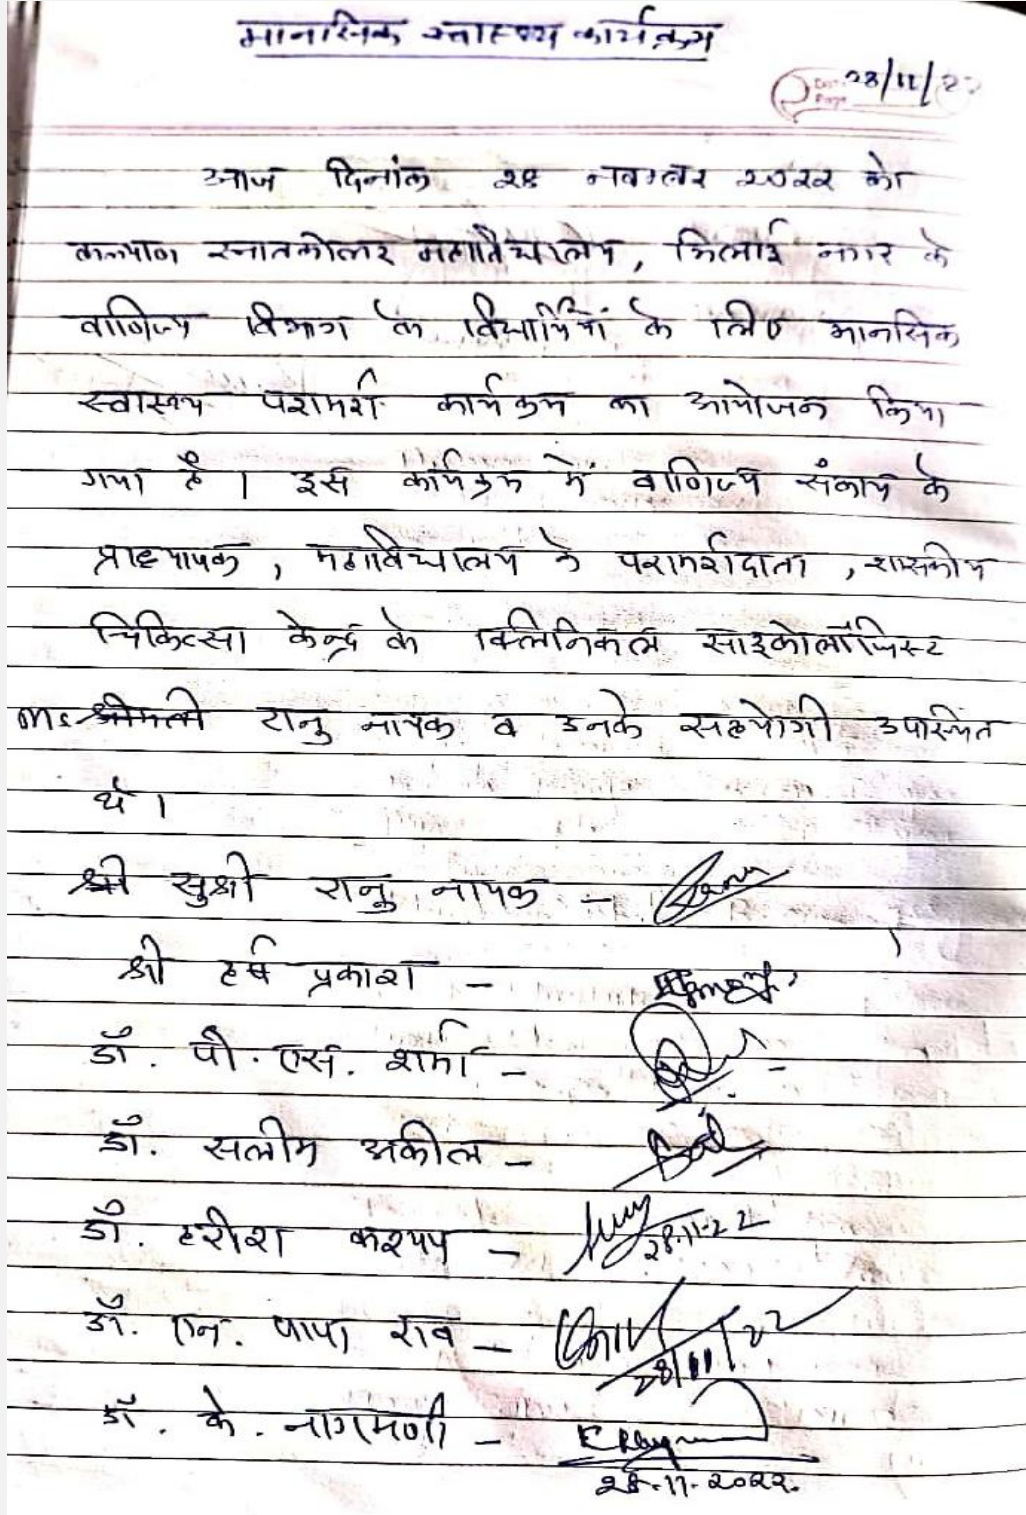 मानसिक स्वास्थ्य कार्यक्रम
28/11/22
आज दिनांक २८ नवम्बर २०२२ को
कल्याण स्नातकोत्तर महाविद्यालय, भिलाई नगर के
वाणिज्य विभाग के विद्यार्थियों के लिए मानसिक
स्वास्थ्य परामर्श कार्यक्रम का आयोजन किया
गया है । इस कार्यक्रम में वाणिज्य संकाय के
प्राध्यापक , महाविद्यालय के परामर्शदाता , शासकीय
चिकित्सा केन्द्र के क्लिनिकल साइकोलॉजिस्ट
Ms श्रीमती रानु नायक व उनके सहयोगी उपस्थित
थे ।
श्री सुश्री रानु नायक -
श्री हर्ष प्रकाश -
डॉ. पी. एस. शर्मा -
डॉ. सलीम अकील -
डॉ. हरीश कश्यप - 28-11-22
डॉ. एन. पापा राव - 28/11/22
डॉ. के. नागमणी -
२८-11-२०२२.